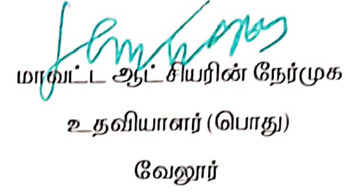 மாவட்ட ஆட்சியரின் நேர்முக
உதவியாளர் (பொது)
வேலூர்